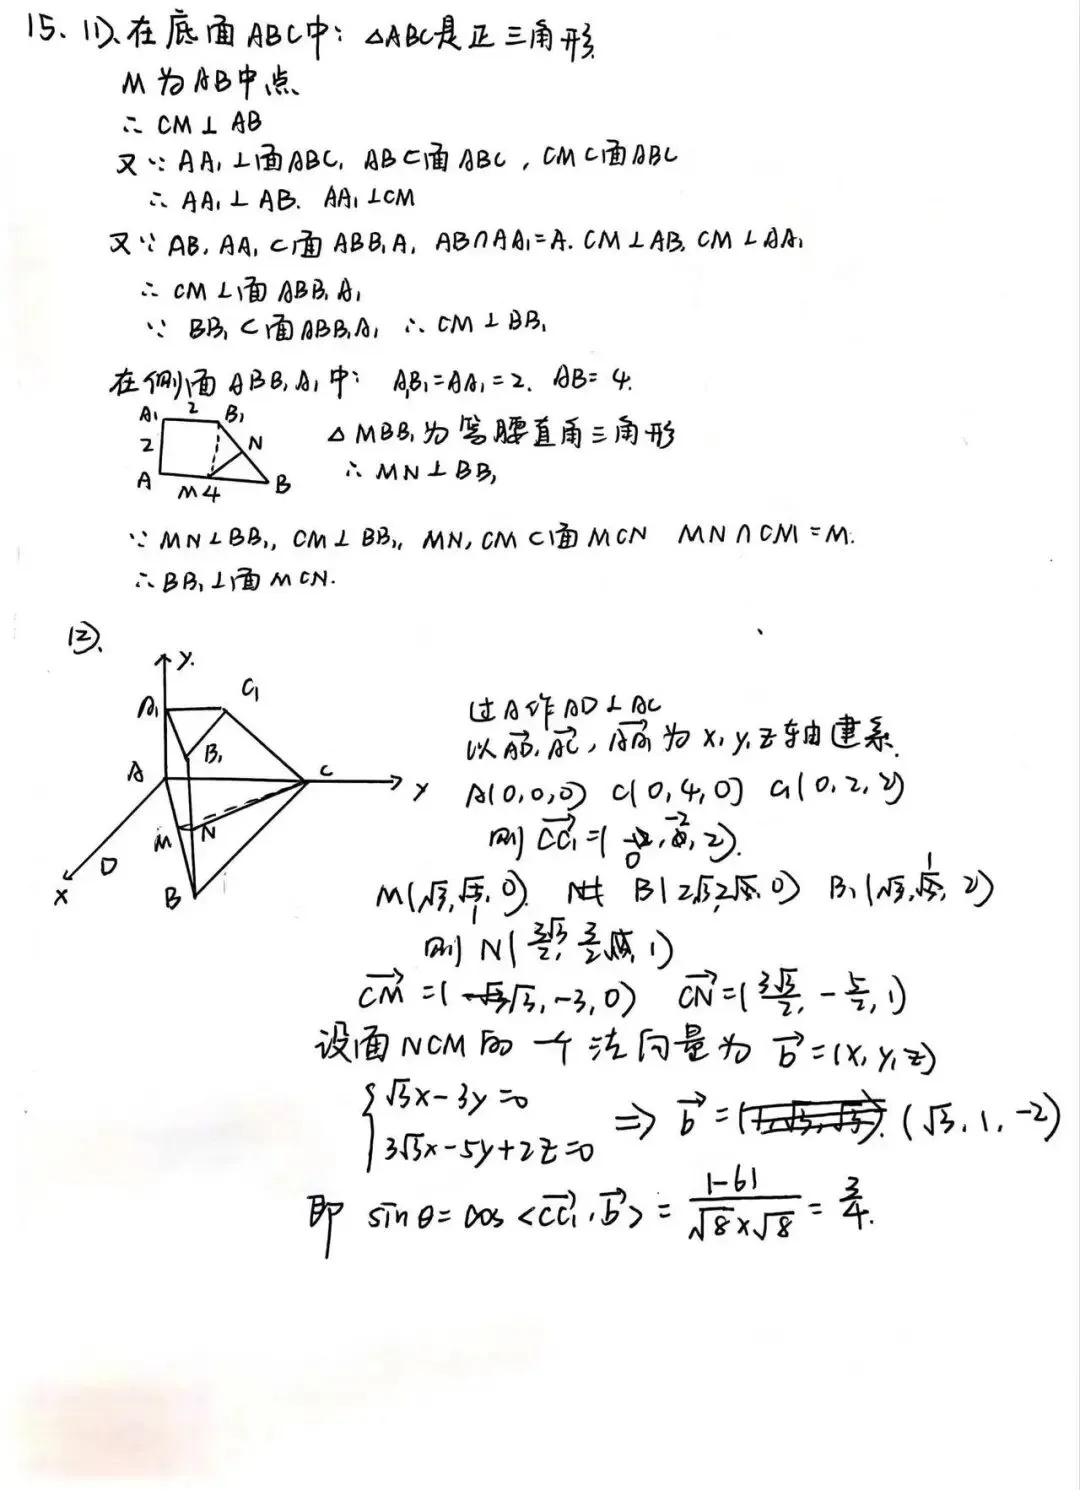 15. (1). 在底面ABC中: △ABC是正三角形
M为AB中点
∴ CM⊥AB
又∵ AA₁⊥面ABC, AB⊂面ABC, CM⊂面ABC
∴ AA₁⊥AB. AA₁⊥CM
又∵ AB, AA₁⊂面ABB₁A₁ AB∩AA₁=A. CM⊥AB. CM⊥AA₁
∴ CM⊥面ABB₁A₁
∵ BB₁⊂面ABB₁A₁ ∴ CM⊥BB₁
在侧面ABB₁A₁中: A₁B₁=AA₁=2. AB=4.
A₁ 2 B₁
2 N
A M 4 B
△MBB₁为等腰直角三角形
∴ MN⊥BB₁
∵ MN⊥BB₁, CM⊥BB₁, MN, CM⊂面MCN MN∩CM=M.
∴ BB₁⊥面MCN.
(2).
y.
A₁ C₁
B₁
A C y
M N
D
x B
过A作AD⊥AC
以AD, AC, AA₁为x, y, z轴建系.
A(0,0,0) C(0,4,0) C₁(0,2,2)
则 CC₁=(0,-2,2).
M(√3,1,0). B(2√3,2,0) B₁(√3,1,2)
则 N(3√3/2, 3/2, 1)
CM=(√3,-3,0) CN=(3√3/2,-5/2,1)
设面NCM的一个法向量为 b=(x,y,z)
{√3x-3y=0
3√3x-5y+2z=0
⇒ b=(√3,1,-2)
即 sinθ=cos<CC₁,b>=|-6|/(√8×√8)=3/4.